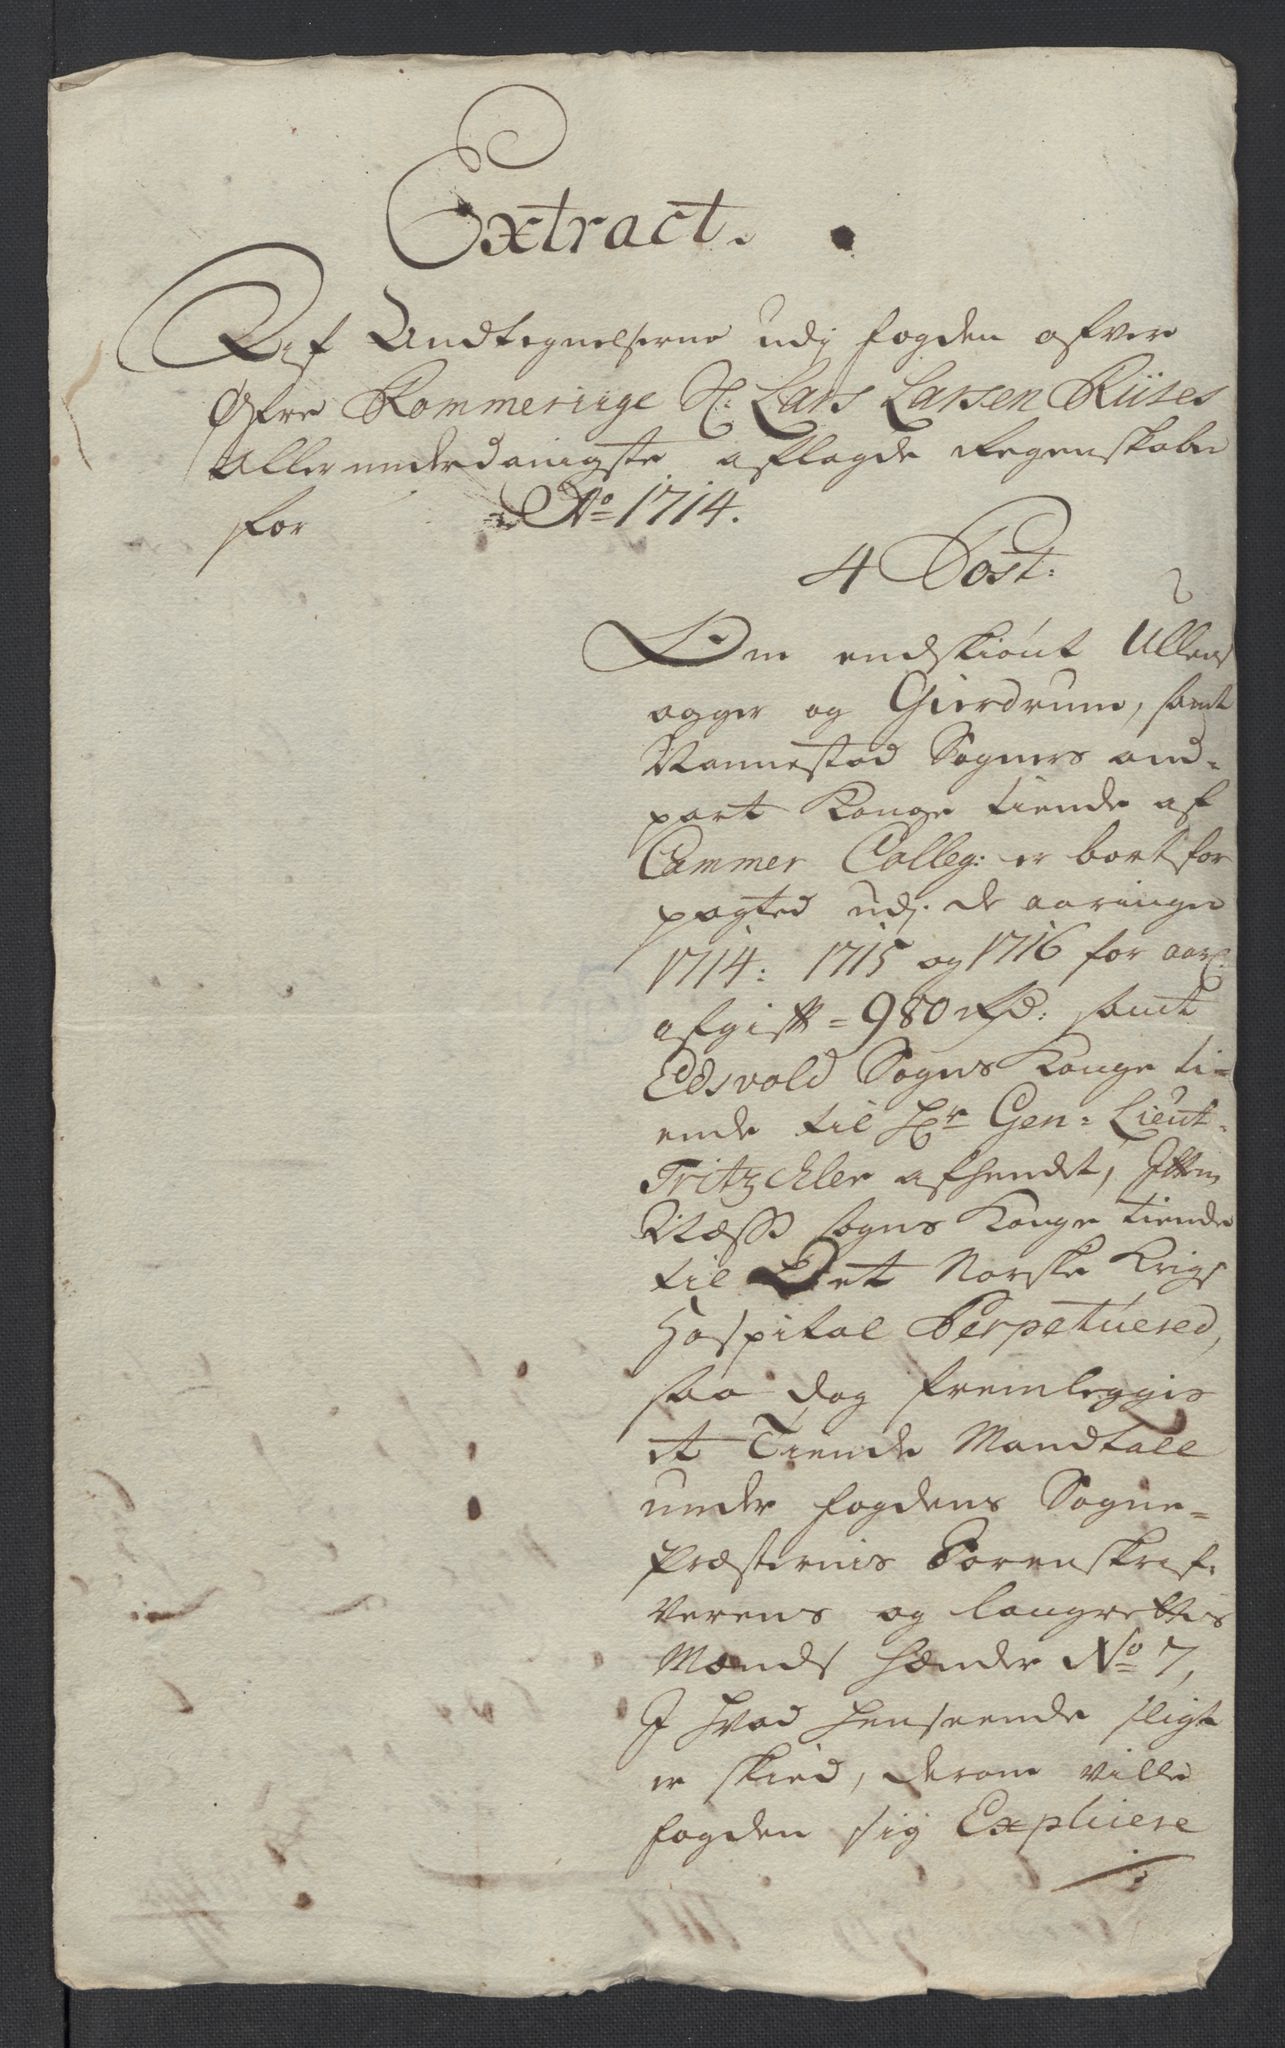 Extract.
Af Andtegnelserne udj fogden ofver
Øfre Rommeriige Sr: Lars Larsen Riises
Allerunderdanigste aflagde Regenskaber
for Ao 1714.
4 Post:
Om endskiønt Ullens
ager og Gierdrum, samt
Nannestad Sogners and-
part Konge tiende af
Cammer Colleg: er bortfor
pagted udj. de aaringer
1714: 1715 og 1716 for aarl:
afgift = 980 Rd: samt
Edsvold Sogns Konge ti-
ende til Hr Gen: Lieut:
Tritzchler afhendet, Ittem
Næss sogns Konge tiende
til Det Norske Krigs
Hospital Perpetuered,
saa dog fremleggis
et Tiende Mandtall
under fogdens Sogne-
Præsternis Sorenskrif-
verens og laugrettis
Mænds hænder No 7,
I hvad henseende sligt
er skied, derom ville
fogden sig Explicere